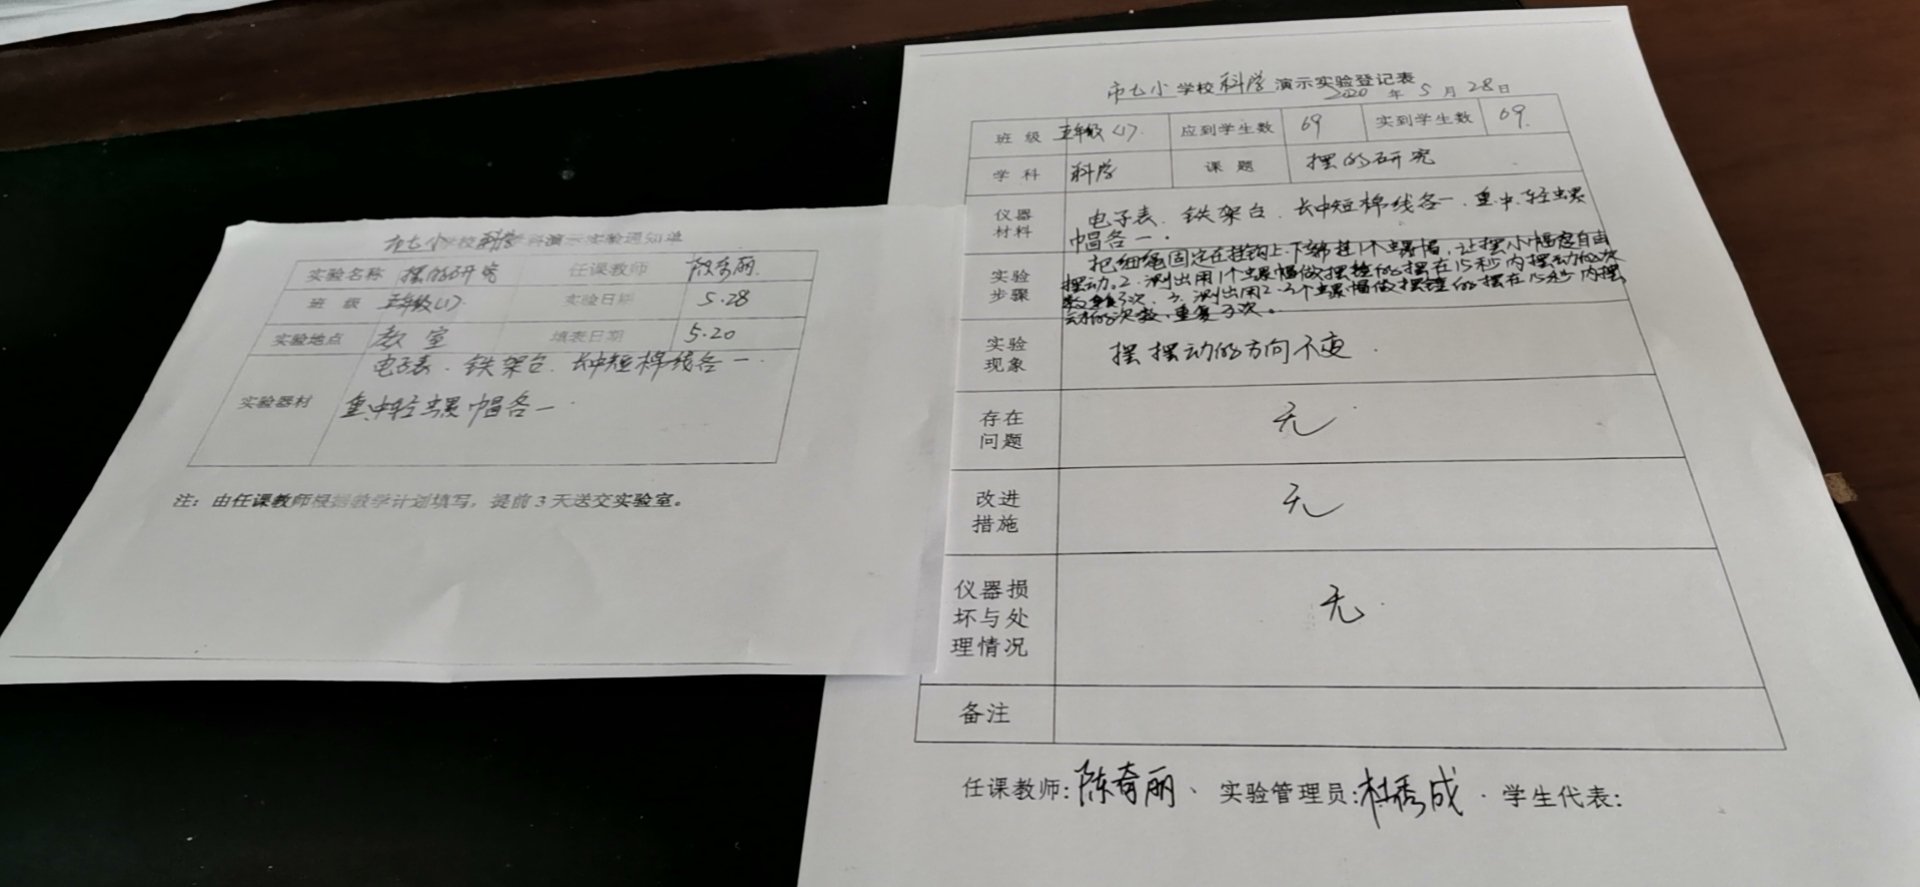 市七小学校科学学科演示实验通知单
实验名称 摆的研究 任课教师 陈奇丽
班 级 五年级(1) 实验日期 5.28
实验地点 教室 填表日期 5.20
实验器材 电子表、铁架台、长中短棉线各一、
重中轻螺帽各一.
注：由任课教师根据教学计划填写，提前 3 天送交实验室。
市七小学校科学演示实验登记表
2020 年 5 月 28 日
班 级 五年级(1) 应到学生数 69 实到学生数 69.
学 科 科学 课 题 摆的研究
仪器材料 电子表、铁架台、长中短棉线各一、重中、轻螺
帽各一.
实验步骤 把细绳固定在挂钩上,下端挂1个螺帽,让摆小幅度自由
摆动。2、测出用1个螺帽做摆锤的摆在15秒内摆动的次
数,重复3次、3、测出用2、3个螺帽做摆锤的摆在15秒内摆
动的次数,重复3次。
实验现象 摆摆动的方向不变.
存在问题 无
改进措施 无
仪器损坏与处理情况 无
备注
任课教师:陈奇丽、 实验管理员:杜秀成 . 学生代表: